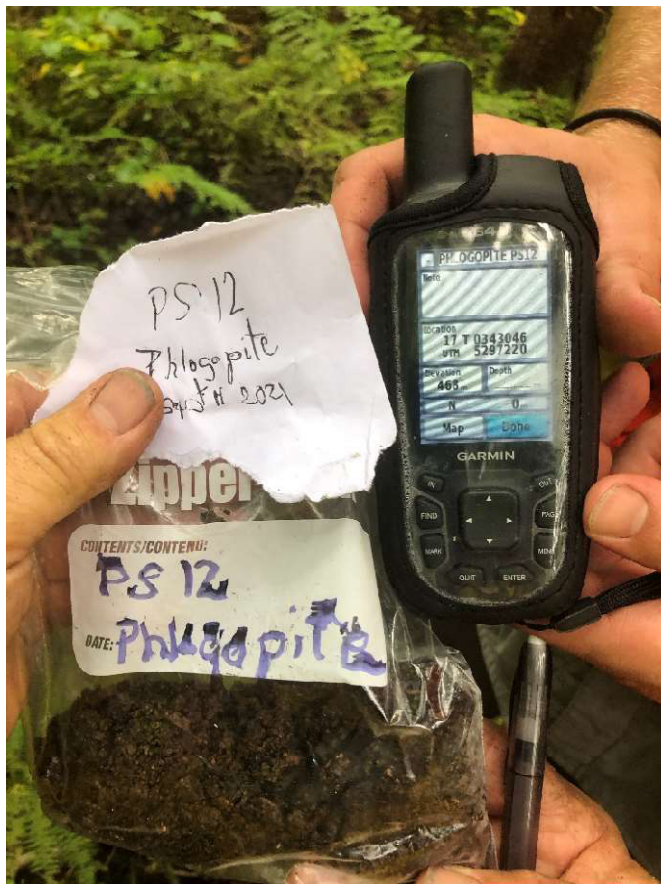 PS 12
Phlogopite
11 2021
Zipper
CONTENTS/CONTENU:
PS 12
DATE: Phlogopite
PHLOGOPITE PS12
Note
Location
17 T 0343046
UTM 5297220
Elevation
Depth
468m
N
0m
Map
Done
GARMIN
IN
OUT
FIND
PAGE
MARK
MENU
QUIT
ENTER